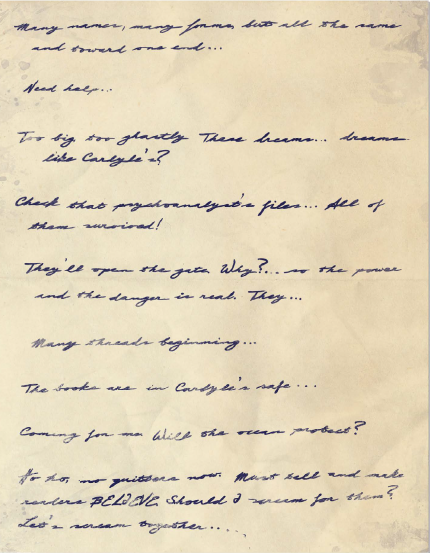 Many names, many forms, but all the same
and toward one end...
Need help...
Too big, too ghastly These dreams... dreams
like Carlyle's?
Check that psychoanalyst's files... All of
them survived!
They'll open the gate. Why?... so the power
and the danger is real. They...
Many threads beginning...
The books are in Carlyle's safe...
Coming for me. Will the ocean protect?
Ho ho, no quitters now. Must tell and make
readers BELIEVE. Should I scream for them?
Let's scream together.....